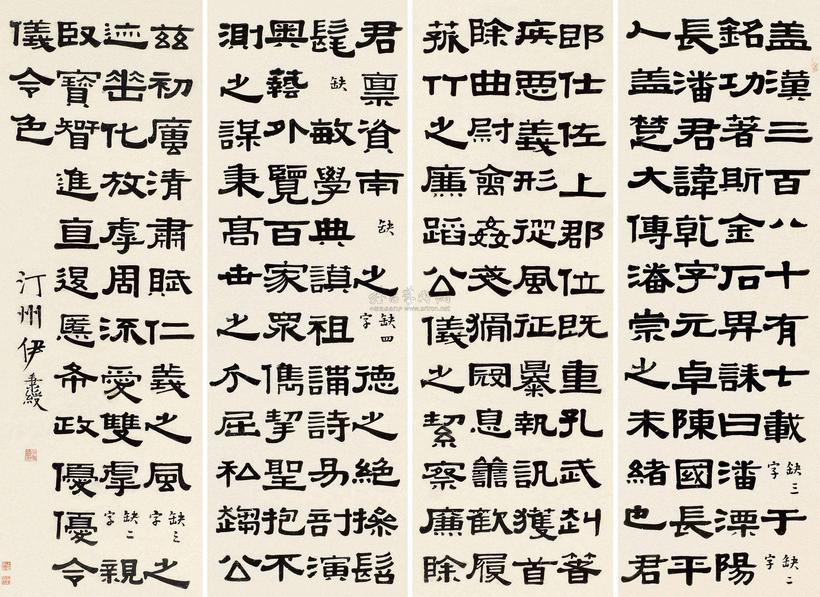 盖漢三百八十有七載缺三字于缺二字
銘功著斯金石畀誄曰潘溧陽
長潘君諱乾字元卓陳國長平
人盖楚大傅潘崇之末緒也君
即仕佐上郡位既重孔武赳著
疾惡義形從風征暴執訊獲首
除曲尉禽姦戔猾寇息善歡履
菻竹之廉蹈公儀之絜察廉除
君稟資南缺之缺四字德之絕操髫
髦缺敏學典謨祖講詩易剖演
奧藝外覽百家眾儁挈聖抱不
測之謀秉高世之介屈私趨公
茲初廣清肅賦仁義之風缺三字之
迹𠌶化放虖周流愛雙虖缺二字親
臤寶智進直退慝布政優優令
儀令色
汀州伊秉綬